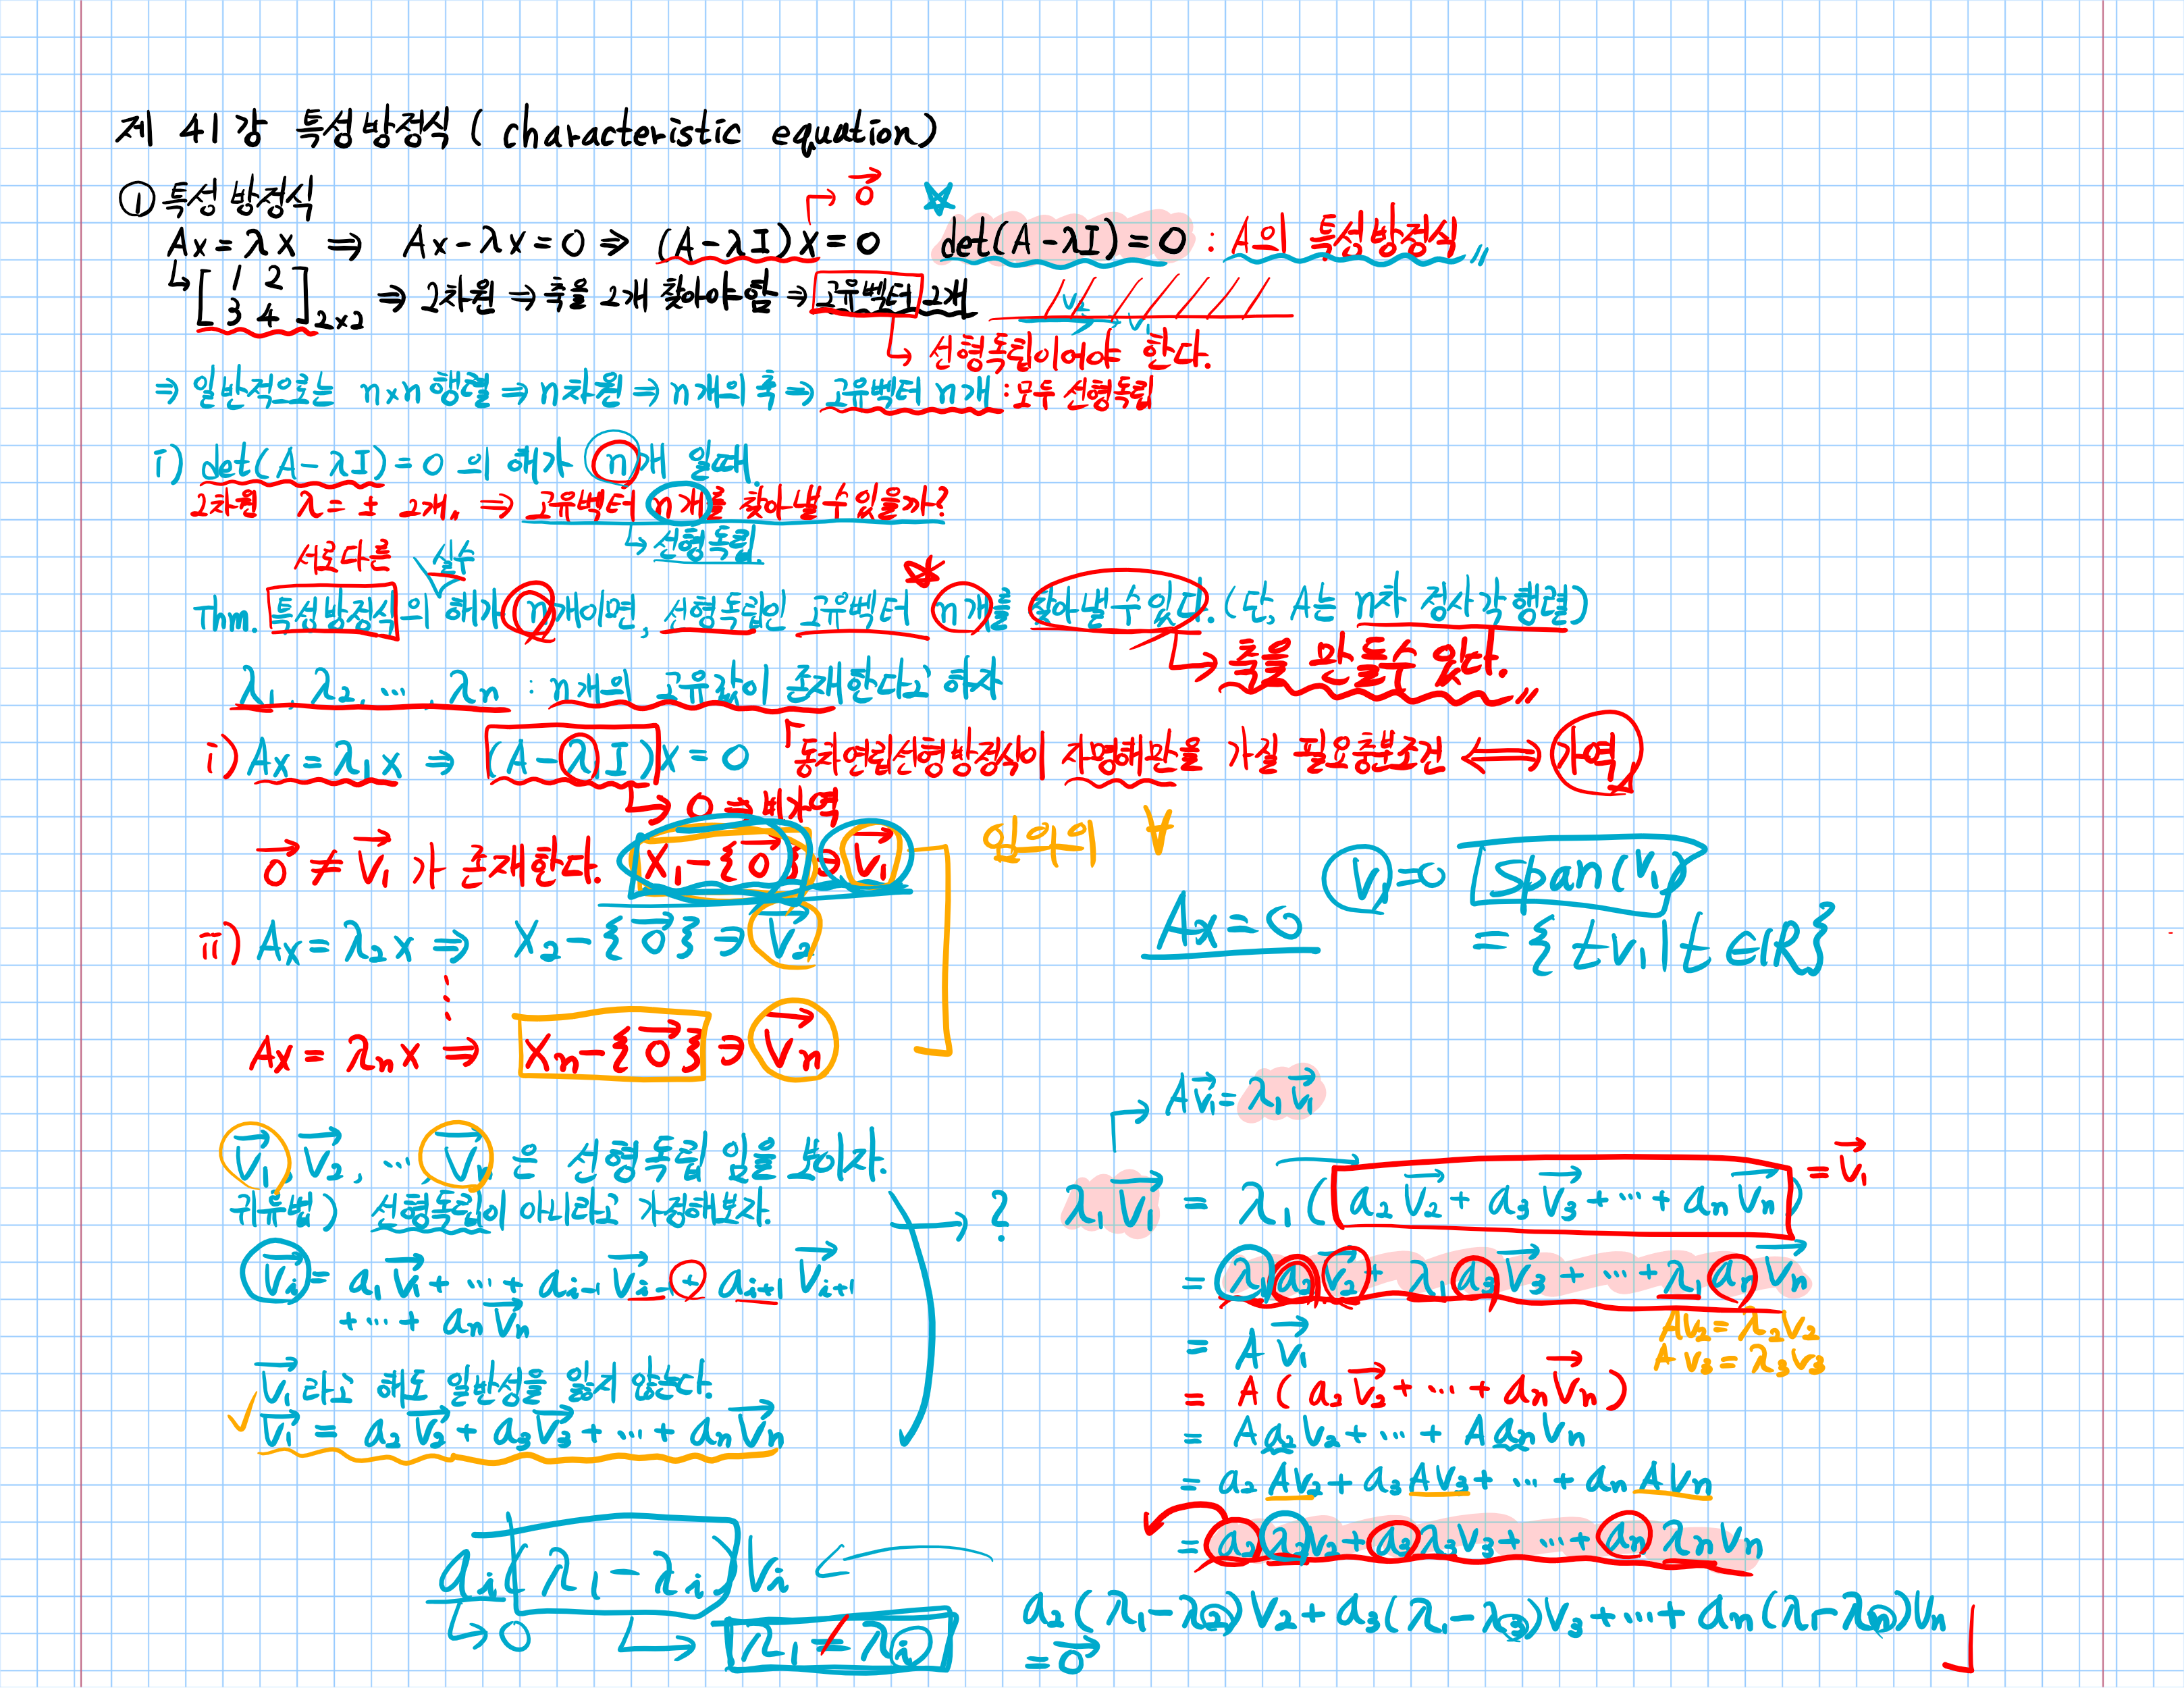 제 41강 특성방정식 ( characteristic equation )
① 특성 방정식
→ 0⃗
Ax = λx ⇒ Ax - λx = 0 ⇒ (A - λI)x = 0 ☆ det(A - λI) = 0 : A의 특성방정식 〃
↳ [1 2; 3 4] 2×2 ⇒ 2차원 ⇒ 축을 2개 찾아야 함 ⇒ 고유벡터 2개
V₂ V₁
↳ 선형독립이어야 한다.
⇒ 일반적으로는 n×n 행렬 ⇒ n차원 ⇒ n개의 축 ⇒ 고유벡터 n개 : 모두 선형독립
i) det(A - λI) = 0 의 해가 n개 일때.
2차원 λ = ± 2개〃 ⇒ 고유벡터 n개를 찾아낼수있을까?
↳ 선형독립.
서로다른 실수
Thm. 특성방정식의 해가 n개이면, 선형독립인 고유벡터 n개를 찾아낼 수 있다. (단, A는 n차 정사각행렬)
↳ 축을 만들수 있다. 〃
λ₁, λ₂, ⋯, λn : n개의 고유값이 존재한다고 하자
i) Ax = λ₁x ⇒ (A - λ₁I)x = 0 「동차연립선형방정식이 자명해만을 가질 필요충분조건 ⟺ 가역」
↳ 0 ⇒ 비가역
0⃗ ≠ V₁⃗ 가 존재한다. X₁ - {0⃗} ∋ V₁⃗
임의의 ∀
V₁ = 0 span(V₁)
Ax = 0
= { tv₁ | t ∈ ℝ }
ii) Ax = λ₂x ⇒ X₂ - {0⃗} ∋ V₂⃗
⋮
Ax = λnx ⇒ Xn - {0⃗} ∋ Vn⃗
V₁⃗, V₂⃗, ⋯ Vn⃗ 은 선형독립 임을 보이자.
귀류법) 선형독립이 아니라고 가정해보자.
Vi⃗ = a₁V₁⃗ + ⋯ + ai-1 Vi-1⃗ + ai+1 Vi+1⃗
+ ⋯ + anVn⃗
V₁⃗ 라고 해도 일반성을 잃지 않는다.
✓ V₁⃗ = a₂V₂⃗ + a₃V₃⃗ + ⋯ + anVn⃗
→ ?
→ AV₁⃗ = λ₁V₁⃗
λ₁V₁⃗ = λ₁( a₂V₂⃗ + a₃V₃⃗ + ⋯ + anVn⃗ ) = V₁⃗
= λ₁a₂V₂⃗ + λ₁a₃V₃⃗ + ⋯ + λ₁anVn⃗
AV₂ = λ₂V₂
AV₃ = λ₃V₃
= AV₁⃗
= A( a₂V₂⃗ + ⋯ + anVn⃗ )
= Aa₂V₂ + ⋯ + AanVn
= a₂AV₂ + a₃AV₃ + ⋯ + anAVn
= a₂λ₂V₂ + a₃λ₃V₃ + ⋯ + anλnVn
a₂(λ₁-λ₂)V₂ + a₃(λ₁-λ₃)V₃ + ⋯ + an(λ₁-λn)Vn
= 0⃗
ai(λ₁ - λi)Vi ←
↳ 0 ↳ λ₁ ≠ λi